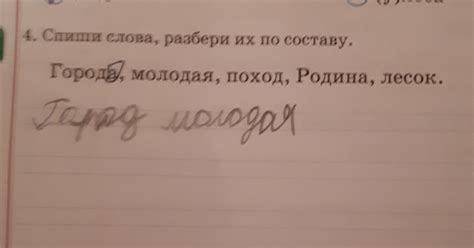 4. Спиши слова, разбери их по составу.
Города, молодая, поход, Родина, лесок.
Город молодая